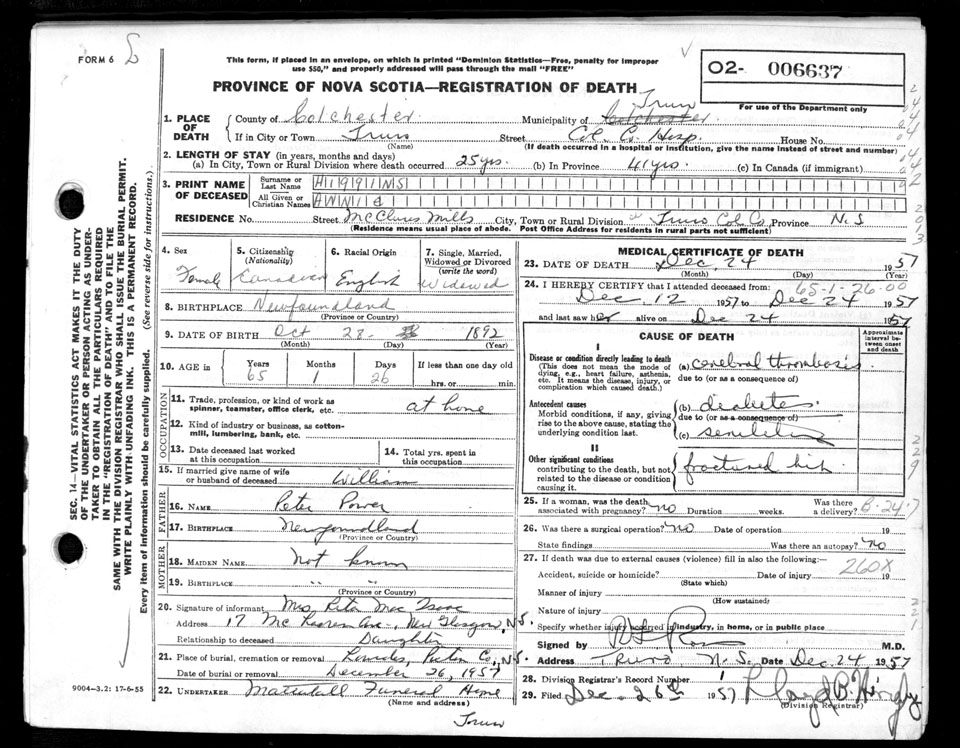 FORM 6
This form, if placed in an envelope, on which is printed "Dominion Statistics—Free, penalty for improper
use $50," and properly addressed will pass through the mail "FREE"
02- 006637
For use of the Department only
PROVINCE OF NOVA SCOTIA—REGISTRATION OF DEATH
Truro
1. PLACE OF DEATH County of Colchester Municipality of Colchester
If in City or Town Truro Street Col. Co. Hosp. House No.
(Name) (If death occurred in a hospital or institution, give the name instead of street and number)
2. LENGTH OF STAY (in years, months and days)
(a) In City, Town or Rural Division where death occurred 25 yrs. (b) In Province 41 yrs. (c) In Canada (if immigrant)
3. PRINT NAME OF DECEASED Surname or Last Name HIGGINS
All Given or Christian Names ANNIE
RESIDENCE No. Street McClures Mills City, Town or Rural Division Truro Col. Co. Province N.S
(Residence means usual place of abode. Post Office Address for residents in rural parts not sufficient)
4. Sex Female
5. Citizenship (Nationality) Canadian
6. Racial Origin English
7. Single, Married, Widowed or Divorced (write the word) Widowed
8. BIRTHPLACE Newfoundland
(Province or Country)
9. DATE OF BIRTH Oct 28 1892
(Month) (Day) (Year)
10. AGE IN Years 65 Months 1 Days 26 If less than one day old hrs. or min.
OCCUPATION
11. Trade, profession, or kind of work as spinner, teamster, office clerk, etc. at home
12. Kind of industry or business, as cotton-mill, lumbering, bank, etc.
13. Date deceased last worked at this occupation
14. Total yrs. spent in this occupation
15. If married give name of wife or husband of deceased William
FATHER
16. NAME Peter Power
17. BIRTHPLACE Newfoundland
(Province or Country)
MOTHER
18. MAIDEN NAME Not known
19. BIRTHPLACE " "
(Province or Country)
20. Signature of informant Mrs. Rita Mac Isaac
Address 17 New Glasgow, N.S.
Relationship to deceased Daughter
21. Place of burial, cremation or removal Lourdes, Pictou Co, N.S.
Date of burial or removal December 26, 1957
22. UNDERTAKER Mattatall Funeral Home
(Name and address)
Truro
9004-3.2: 17-6-55
MEDICAL CERTIFICATE OF DEATH
23. DATE OF DEATH Dec. 24 1957
(Month) (Day) (Year)
24. I HEREBY CERTIFY that I attended deceased from: 65-1-26-00
Dec 12 1957 to Dec 24 1957
and last saw her alive on Dec 24 1957
CAUSE OF DEATH
Approximate interval between onset and death
I
Disease or condition directly leading to death
(This does not mean the mode of dying, e.g., heart failure, asthenia, etc. It means the disease, injury, or complication which caused death.)
(a) cerebral thrombosis
due to (or as a consequence of)
Antecedent causes
Morbid conditions, if any, giving rise to the above cause, stating the underlying condition last.
(b) diabetes
due to (or as a consequence of)
(c) senility
II
Other significant conditions
contributing to the death, but not related to the disease or condition causing it.
fractured hip
25. If a woman, was the death associated with pregnancy? no Duration weeks. Was there a delivery?
26. Was there a surgical operation? no Date of operation 19
State findings Was there an autopsy? no
27. If death was due to external causes (violence) fill in also the following:— 260X
Accident, suicide or homicide? Date of injury 19
(State which)
Manner of injury
(How sustained)
Nature of injury
Specify whether injury occurred in industry, in home, or in public place
Signed by M.D.
Address Truro, N.S. Date Dec. 24 1957
28. Division Registrar's Record Number
29. Filed Dec 26th 1957
(Division Registrar)
SEC. 14—VITAL STATISTICS ACT MAKES IT THE DUTY
OF THE UNDERTAKER OR PERSON ACTING AS UNDER-
TAKER TO OBTAIN ALL THE PARTICULARS REQUIRED
IN THE "REGISTRATION OF DEATH" AND TO FILE THE
SAME WITH THE DIVISION REGISTRAR WHO SHALL ISSUE THE BURIAL PERMIT.
WRITE PLAINLY WITH UNFADING INK. THIS IS A PERMANENT RECORD.
Every item of information should be carefully supplied. (See reverse side for instructions.)